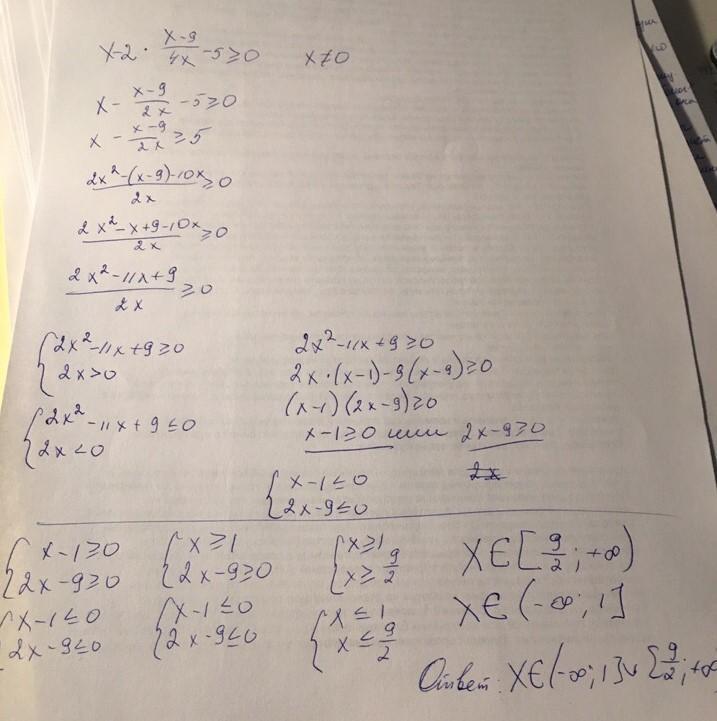 x-2 · (x-9)/(4x) -5≥0 x≠0
x - (x-9)/(2x) -5≥0
x - (x-9)/(2x) ≥5
(2x²-(x-9)-10x)/(2x) ≥0
(2x²-x+9-10x)/(2x) ≥0
(2x²-11x+9)/(2x) ≥0
{2x²-11x+9≥0
2x>0
{2x²-11x+9≤0
2x<0
2x²-11x+9≥0
2x·(x-1)-9(x-9)≥0
(x-1)(2x-9)≥0
x-1≥0 или 2x-9≥0
2x
{x-1≤0
2x-9≤0
{x-1≥0 {x≥1 {x≥1 x∈[9/2;+∞)
2x-9≥0 2x-9≥0 x≥9/2
{x-1≤0 {x-1≤0 {x≤1 x∈(-∞;1]
2x-9≤0 2x-9≤0 x≤9/2
Ответ: x∈(-∞;1]∪[9/2;+∞